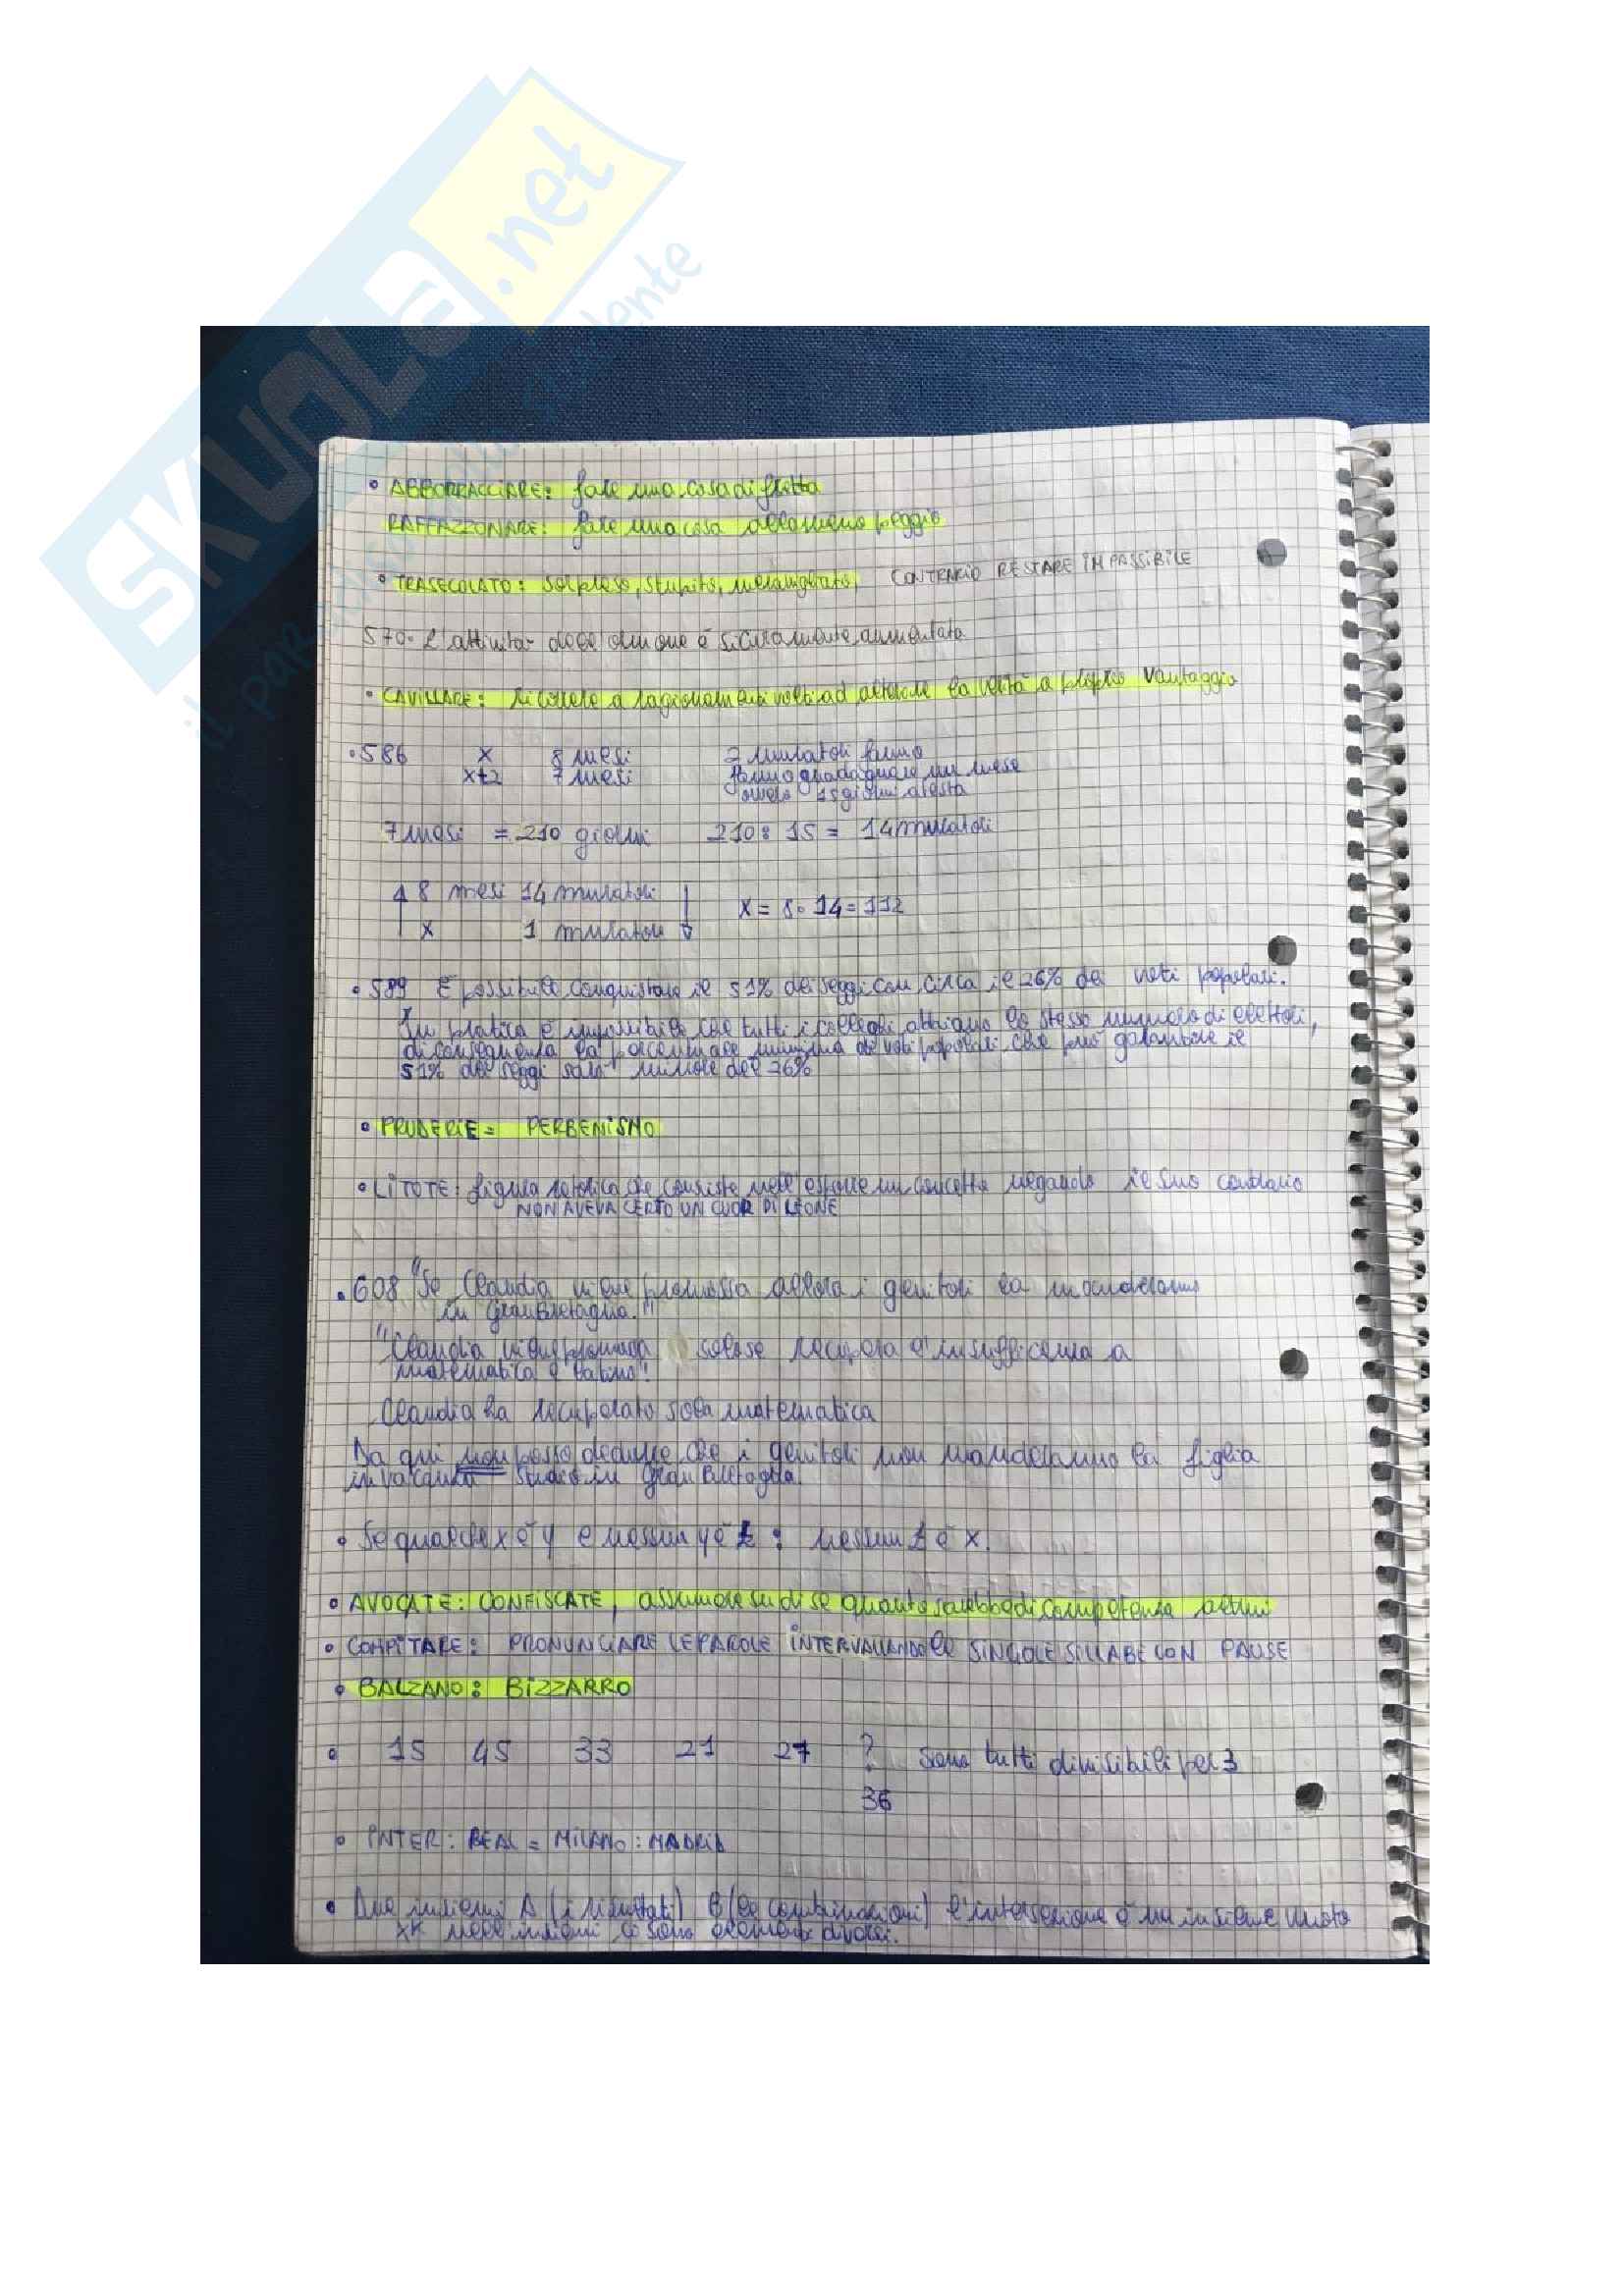 SKUOLA.net
• ABBORRACCIARE: fare una cosa di fretta
RAFFAZZONARE: fare una cosa alla meno peggio
• TRASECOLATO: sorpreso, stupito, meravigliato, CONTRARIO RESTARE IMPASSIBILE
570. L'attività delle dunque è sicuramente aumentata
• CAVILLARE: ricorrere a ragionamenti volti ad alterare la verità a proprio vantaggio
• 586 x 8 mesi 2 muratori fanno
x+2 7 mesi fanno guadagnare un mese
ovvero 15 giorni a testa
7 mesi = 210 giorni 210 : 15 = 14 muratori
8 mesi 14 muratori x = 8 · 14 = 112
x 1 muratore
• 589 È possibile conquistare il 51% dei seggi con circa il 26% dei voti popolari.
In pratica è impossibile che tutti i collegi abbiano lo stesso numero di elettori,
di conseguenza la percentuale minima di voti popolari che può garantire il
51% dei seggi sarà minore del 26%
• PRUDERIE = PERBENISMO
• LITOTE: figura retorica che consiste nell'esporre un concetto negando il suo contrario
NON AVEVA CERTO UN CUOR DI LEONE
• 608 "Se Claudia viene promossa allora i genitori la manderanno
in Gran Bretagna."
"Claudia viene promossa solo se recupera l'insufficienza a
matematica e latino"
Claudia ha recuperato solo matematica
Da qui non posso dedurre che i genitori non manderanno la figlia
in vacanza studio in Gran Bretagna.
• Se qualche x è y e nessun y è z : nessun z è x.
• AVOCATE: CONFISCATE, assumere su di sé quanto sarebbe di competenza altrui
• COMPITARE: PRONUNCIARE LE PAROLE INTERVALLANDO le SINGOLE SILLABE CON PAUSE
• BALZANO: BIZZARRO
• 15 45 33 21 27 ? sono tutti divisibili per 3
36
• INTER : REAL = MILANO : MADRID
• Due insiemi A (i risultati) B (le combinazioni) l'intersezione è un insieme vuoto
xk nell'insiemi ci sono elementi diversi.